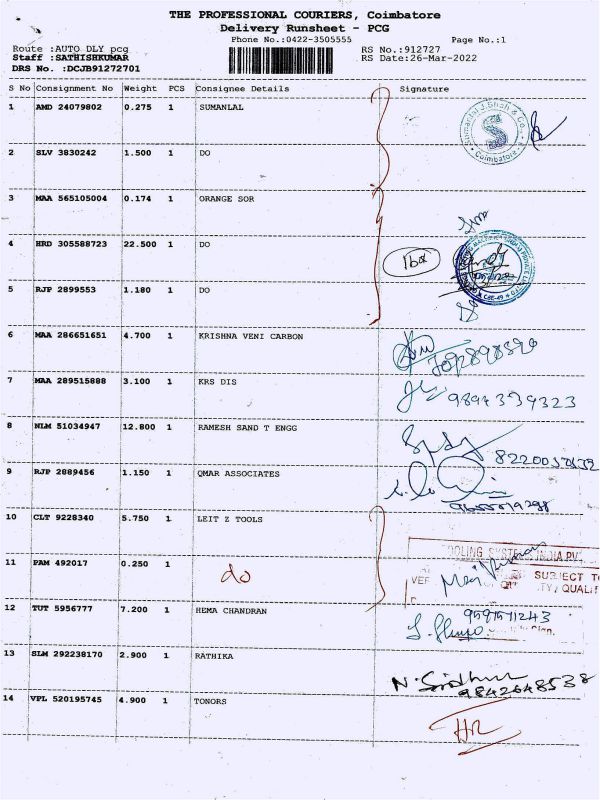 THE PROFESSIONAL COURIERS, Coimbatore
Delivery Runsheet - PCG
Phone No.:0422-3505555 Page No.:1
Route :AUTO DLY pcg RS No.:912727
Staff :SATHISHKUMAR RS Date:26-Mar-2022
DRS No. :DCJB91272701
S No Consignment No Weight PCS Consignee Details Signature
1 AMD 24079802 0.275 1 SUMANLAL
Sumanlal J. Shah & Co., Coimbatore
2 SLV 3830242 1.500 1 DO
3 MAA 565105004 0.174 1 ORANGE SOR
4 HRD 305588723 22.500 1 DO
5 RJP 2899553 1.180 1 DO
6 MAA 286651651 4.700 1 KRISHNA VENI CARBON
7 MAA 289515888 3.100 1 KRS DIS
8 NLM 51034947 12.800 1 RAMESH SAND T ENGG
9 RJP 2889456 1.150 1 QMAR ASSOCIATES
10 CLT 9228340 5.750 1 LEIT Z TOOLS
OOLING SYSTEMS INDIA PV
11 PAM 492017 0.250 1 do
SUBJECT TO
TY / QUALIT
12 TUT 5956777 7.200 1 HEMA CHANDRAN
9591571243
13 SLM 292238170 2.900 1 RATHIKA
9842648538
14 VPL 520195745 4.900 1 TONORS
HR